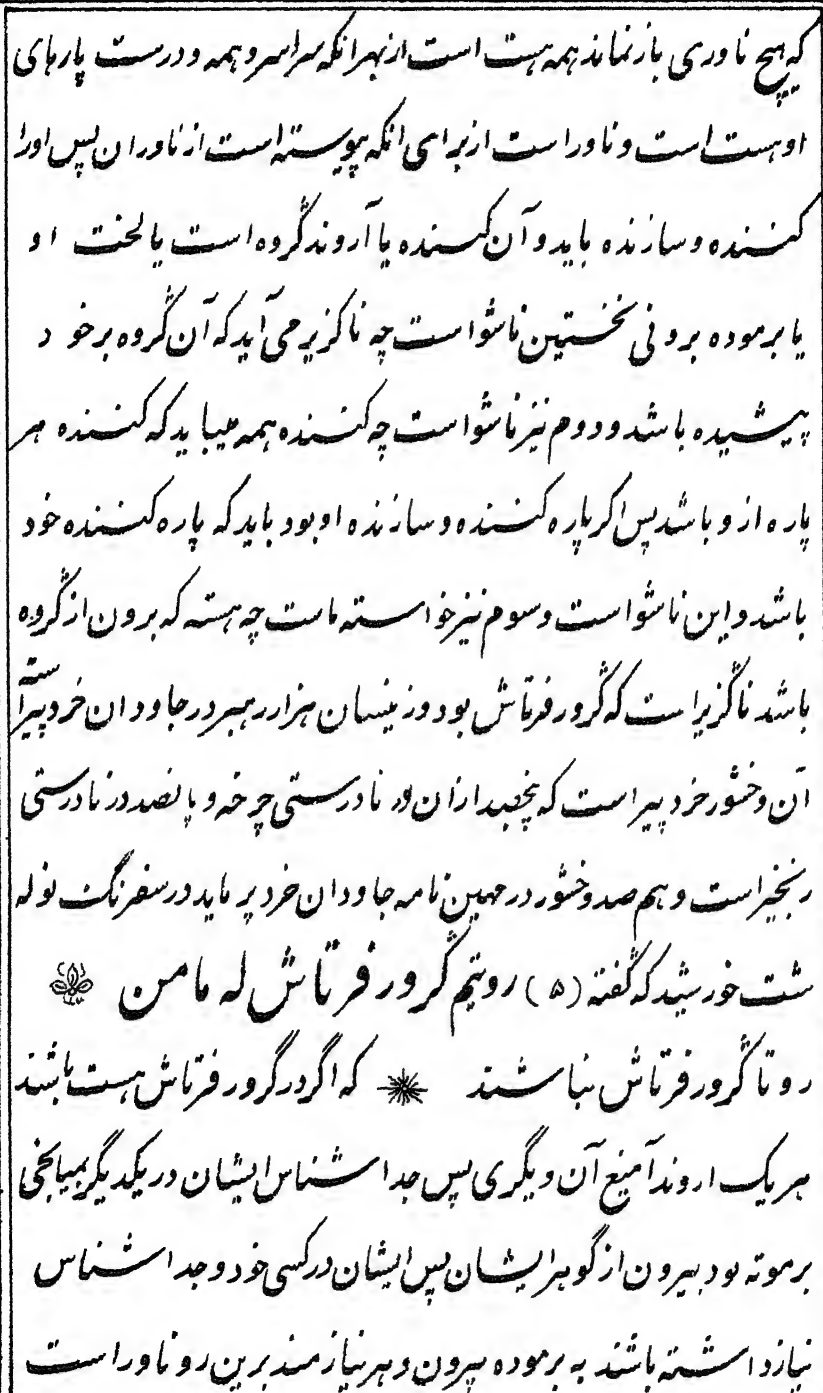 که هیچ ناوری باز نماند همه هست است از بهر انکه سراسر و همه و درست پارهای
او هست است و ناور است از برای انکه پیوسته است از ناوران پس او را
کننده و سازنده باید و آن کننده یا آروند گروه است یا لخت او
یا برموده برونی نخستین ناشوا ست چه ناگزیر می آید که آن گروه بر خود
پیشیده باشد و دوم نیز ناشوا ست چه کننده همه میباید که کننده هر
پاره از و باشد پس اکر پاره کننده و سازنده او بود باید که پاره کننده خود
باشد و این ناشوا ست و سوم نیز خواسته ماست چه هسته که برون از گروه
باشد ناگزیر است که گرور فرتاش بود و زینسان هزار رهبر در جاودان خرد پیراسته
آن وخشور خرد پیر است که پنجصد ازان در نادرستی چرخه و پانصد در نادرستی
رنجیر است و هم صد وخشور در مهین نامه جاودان خرد پر ماید در سفرنگ نوله
شت خورشید که گفته (۵) رویتم گرور فرتاش له مامن
رو تا گرور فرتاش نباشند که اگر در گرور فرتاش هست باشند
هر یک اروند آمیغ آن دیگری پس جدا شناس ایشان در یکدیگر بمیانجی
برموته بود بیرون از گوهر ایشان پس ایشان در کسی خود و جدا شناس
نیاز داشته باشند به برموده بیرون و هر نیازمند برین رو ناور است